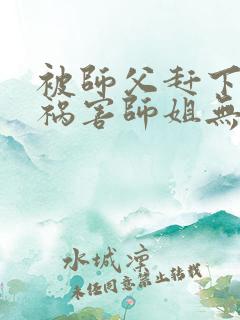 被師父赶下
祸害師姐無
水城凛
未经同意禁止转载